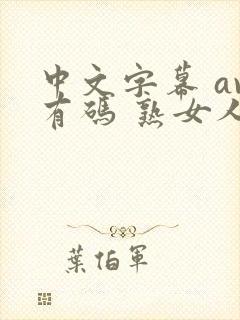 中文字幕 av
有碼 熟女人
葉伯軍